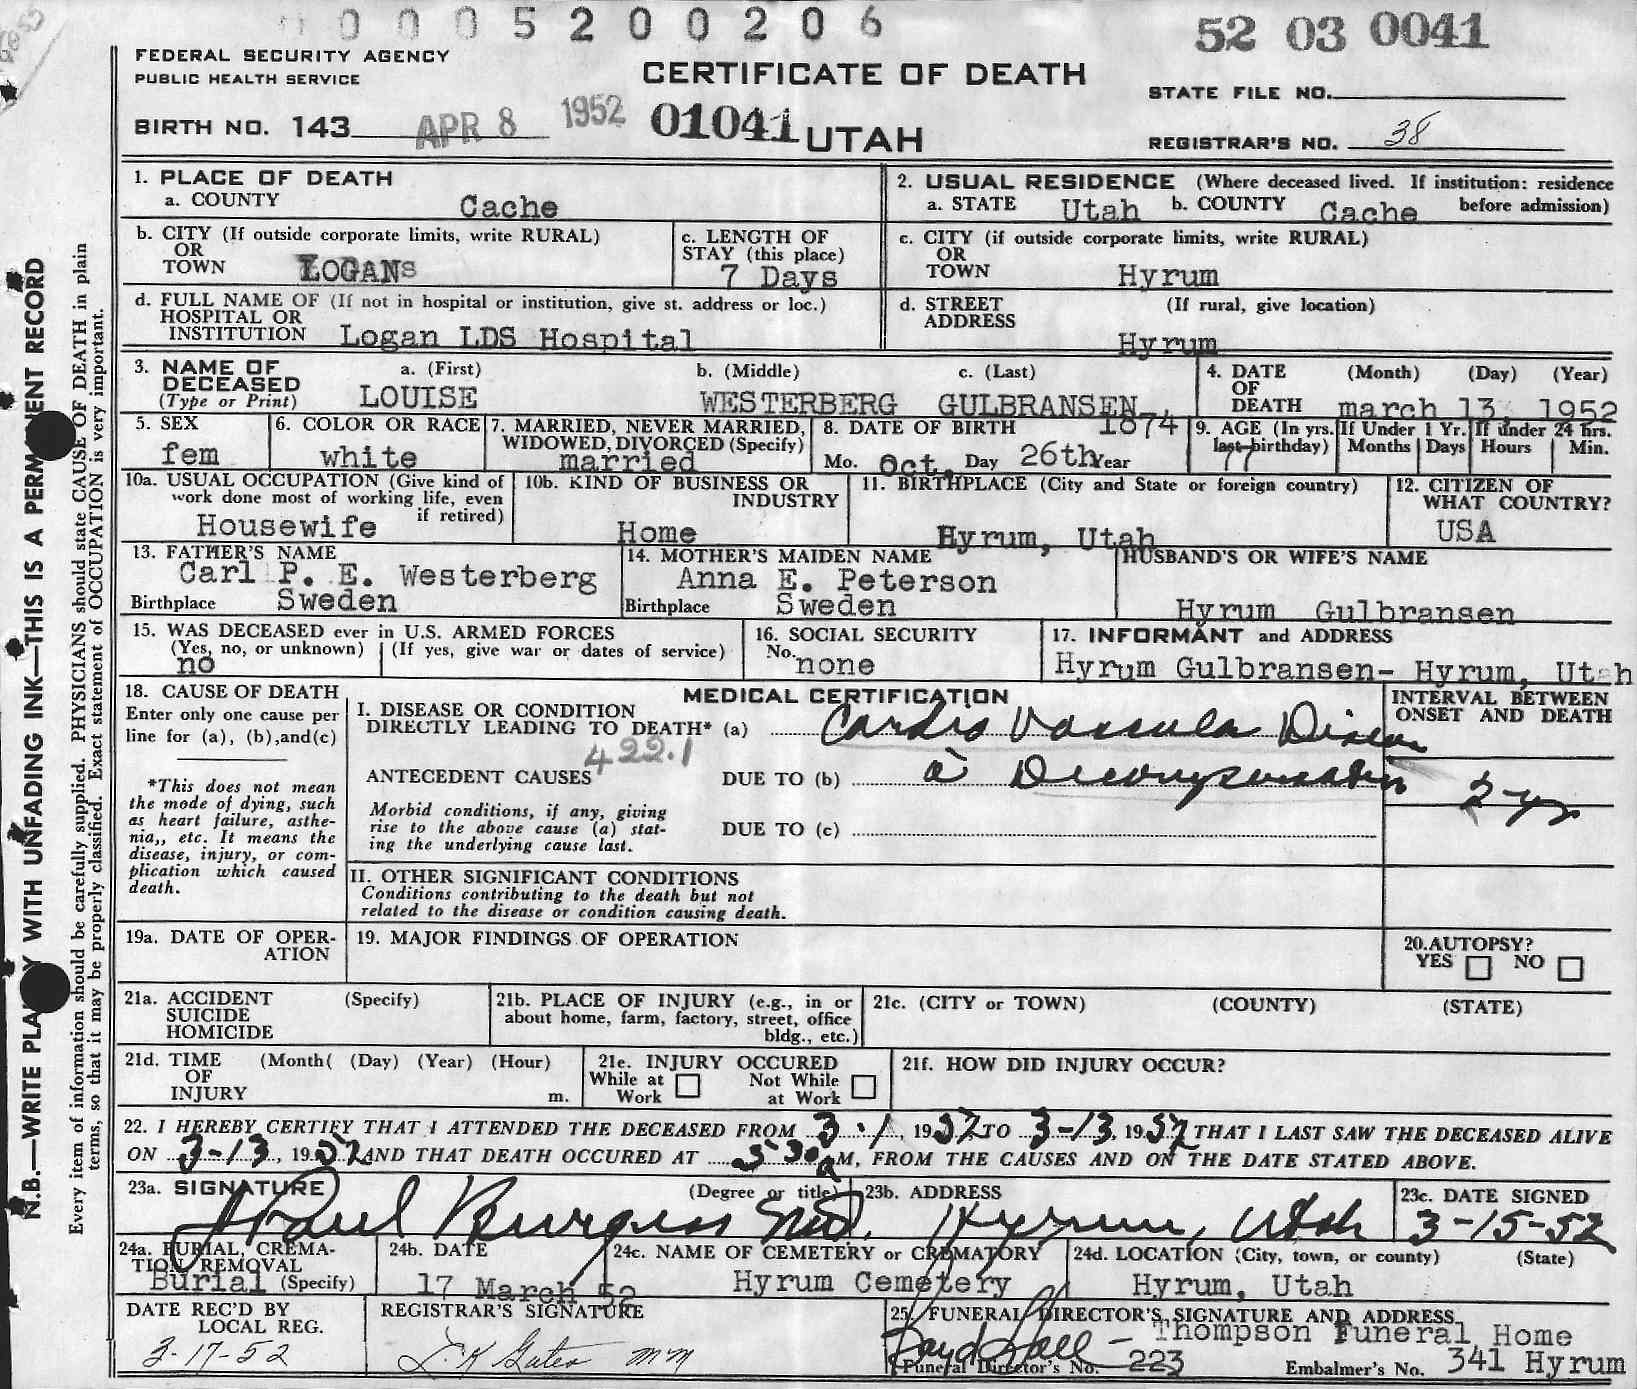 0 0 0 5 2 0 0 2 0 6
52 03 0041
FEDERAL SECURITY AGENCY
PUBLIC HEALTH SERVICE
CERTIFICATE OF DEATH
STATE FILE NO.
BIRTH NO. 143 APR 8 1952 01041 UTAH
REGISTRAR'S NO. 38
N.B.—WRITE PLAINLY WITH UNFADING INK—THIS IS A PERMANENT RECORD
Every item of information should be carefully supplied. PHYSICIANS should state CAUSE OF DEATH in plain
terms, so that it may be properly classified. Exact statement of OCCUPATION is very important.
1. PLACE OF DEATH
a. COUNTY Cache
2. USUAL RESIDENCE (Where deceased lived. If institution: residence
a. STATE Utah b. COUNTY Cache before admission)
b. CITY (If outside corporate limits, write RURAL)
OR
TOWN LOGANs
c. LENGTH OF
STAY (this place)
7 Days
c. CITY (if outside corporate limits, write RURAL)
OR
TOWN Hyrum
d. FULL NAME OF (If not in hospital or institution, give st. address or loc.)
HOSPITAL OR
INSTITUTION Logan LDS Hospital
d. STREET (If rural, give location)
ADDRESS
Hyrum
3. NAME OF a. (First) b. (Middle) c. (Last)
DECEASED
(Type or Print) LOUISE WESTERBERG GULBRANSEN
4. DATE (Month) (Day) (Year)
OF
DEATH march 13 1952
5. SEX
fem
6. COLOR OR RACE
white
7. MARRIED, NEVER MARRIED,
WIDOWED, DIVORCED (Specify)
married
8. DATE OF BIRTH 1874
Mo. Oct. Day 26th Year
9. AGE (In yrs.
last birthday)
77
If Under 1 Yr.
Months Days
If under 24 hrs.
Hours Min.
10a. USUAL OCCUPATION (Give kind of
work done most of working life, even
if retired)
Housewife
10b. KIND OF BUSINESS OR
INDUSTRY
Home
11. BIRTHPLACE (City and State or foreign country)
Hyrum, Utah
12. CITIZEN OF
WHAT COUNTRY?
USA
13. FATHER'S NAME
Carl P. E. Westerberg
Birthplace Sweden
14. MOTHER'S MAIDEN NAME
Anna E. Peterson
Birthplace Sweden
HUSBAND'S OR WIFE'S NAME
Hyrum Gulbransen
15. WAS DECEASED ever in U.S. ARMED FORCES
(Yes, no, or unknown) (If yes, give war or dates of service)
no
16. SOCIAL SECURITY
No. none
17. INFORMANT and ADDRESS
Hyrum Gulbransen- Hyrum, Utah
18. CAUSE OF DEATH
Enter only one cause per
line for (a), (b),and(c)
*This does not mean
the mode of dying, such
as heart failure, asthe-
nia,, etc. It means the
disease, injury, or com-
plication which caused
death.
MEDICAL CERTIFICATION
I. DISEASE OR CONDITION
DIRECTLY LEADING TO DEATH* (a) Cardio Vascula Disease
422.1
ANTECEDENT CAUSES DUE TO (b) Decompensation
Morbid conditions, if any, giving
rise to the above cause (a) stat-
ing the underlying cause last.
DUE TO (c)
INTERVAL BETWEEN
ONSET AND DEATH
2 yr
II. OTHER SIGNIFICANT CONDITIONS
Conditions contributing to the death but not
related to the disease or condition causing death.
19a. DATE OF OPER-
ATION
19. MAJOR FINDINGS OF OPERATION
20.AUTOPSY?
YES NO
21a. ACCIDENT (Specify)
SUICIDE
HOMICIDE
21b. PLACE OF INJURY (e.g., in or
about home, farm, factory, street, office
bldg., etc.)
21c. (CITY or TOWN) (COUNTY) (STATE)
21d. TIME (Month( (Day) (Year) (Hour)
OF
INJURY m.
21e. INJURY OCCURED
While at Not While
Work at Work
21f. HOW DID INJURY OCCUR?
22. I HEREBY CERTIFY THAT I ATTENDED THE DECEASED FROM 3-1, 1952 TO 3-13, 1952 THAT I LAST SAW THE DECEASED ALIVE
ON 3-13, 1952 AND THAT DEATH OCCURED AT 530 a M, FROM THE CAUSES AND ON THE DATE STATED ABOVE.
23a. SIGNATURE (Degree or title)
J Paul Burgess MD.
23b. ADDRESS
Hyrum, Utah
23c. DATE SIGNED
3-15-52
24a. BURIAL, CREMA-
TION REMOVAL
Burial (Specify)
24b. DATE
17 March 52
24c. NAME OF CEMETERY or CREMATORY
Hyrum Cemetery
24d. LOCATION (City, town, or county) (State)
Hyrum, Utah
DATE REC'D BY
LOCAL REG.
3-17-52
REGISTRAR'S SIGNATURE
25. FUNERAL DIRECTOR'S SIGNATURE AND ADDRESS
Boyd Hall - Thompson Funeral Home
Funeral Director's No. 223 Embalmer's No. 341 Hyrum